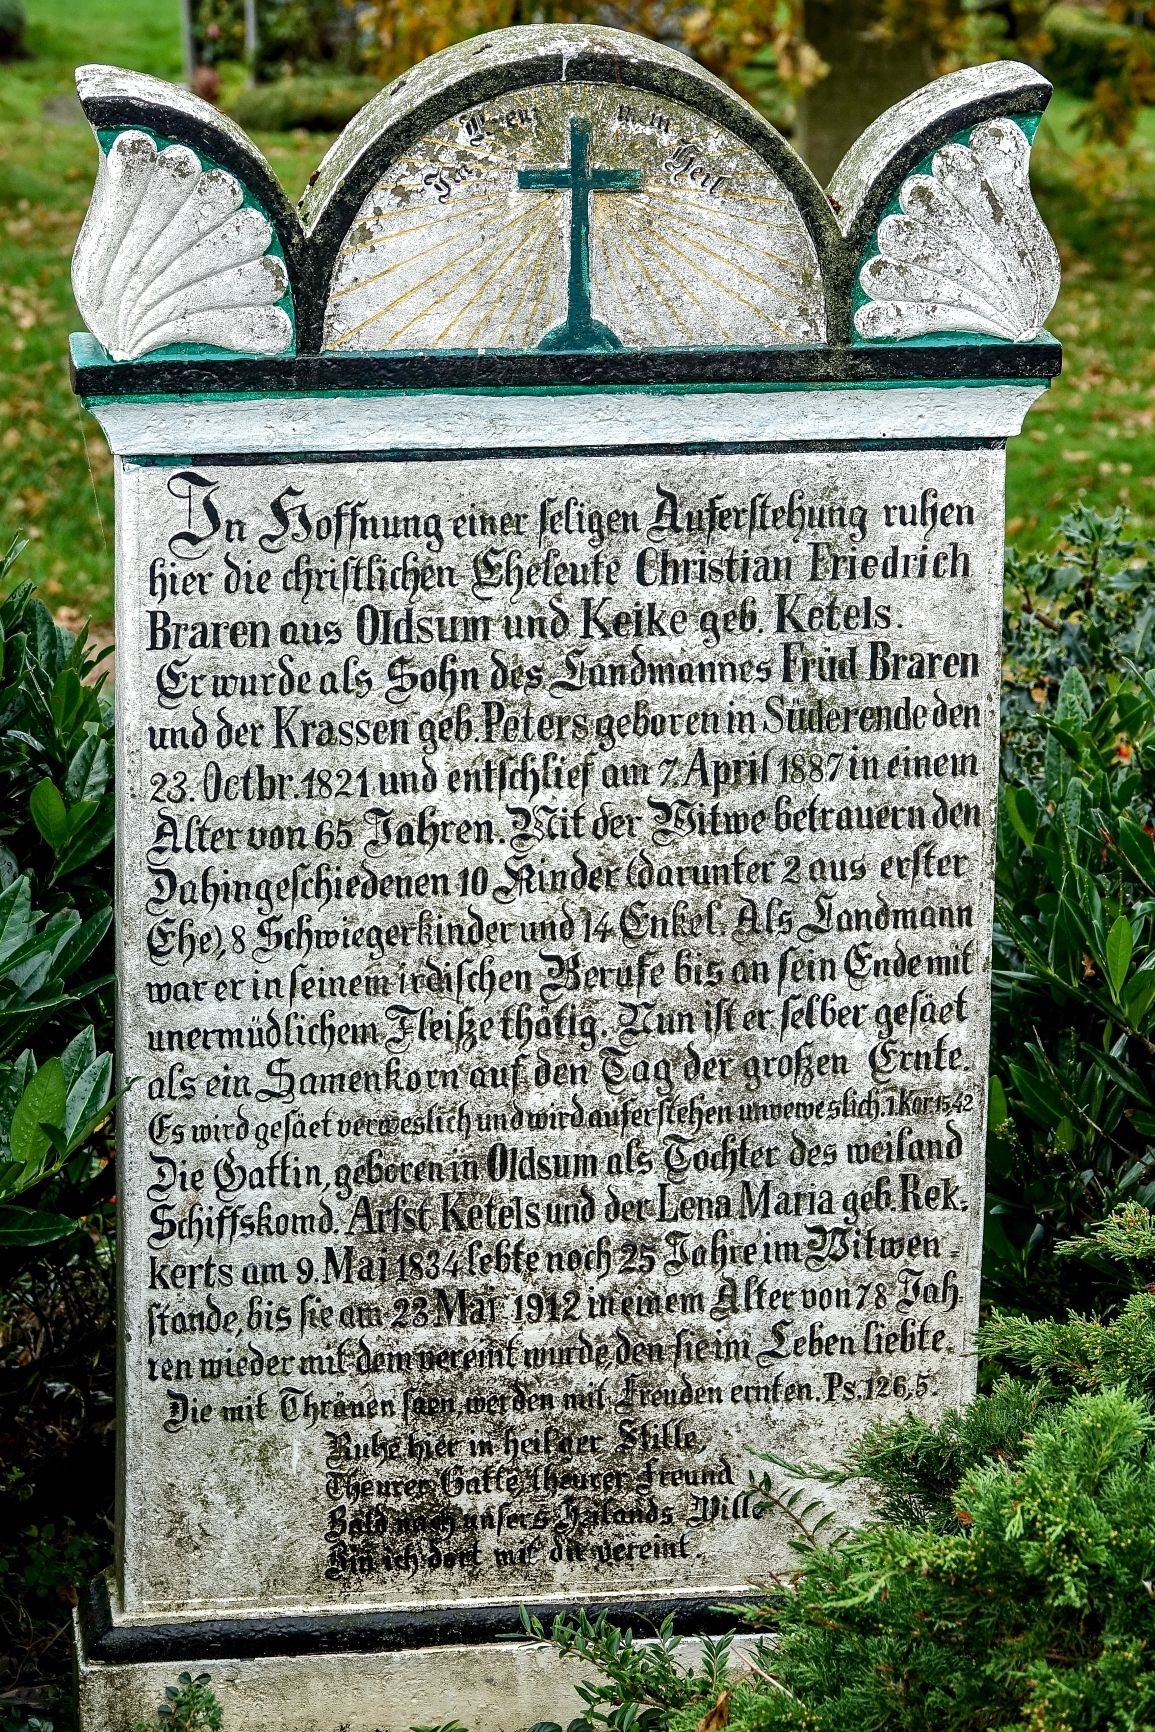 Im Kreuz mein Heil
In Hoffnung einer seligen Auferstehung ruhen
hier die christlichen Eheleute Christian Friedrich
Braren aus Oldsum und Keike geb. Ketels.
Er wurde als Sohn des Landmannes Früd Braren
und der Krassen geb. Peters geboren in Süderende den
23. Octbr. 1821 und entschlief am 7. April 1887 in einem
Alter von 65 Jahren. Mit der Witwe betrauern den
Dahingeschiedenen 10 Kinder (darunter 2 aus erster
Ehe), 8 Schwiegerkinder und 14 Enkel. Als Landmann
war er in seinem irdischen Berufe bis an sein Ende mit
unermüdlichem Fleiße thätig. Nun ist er selber gesäet
als ein Samenkorn auf den Tag der großen Ernte.
Es wird gesäet verweslich und wird auferstehen unverweslich. 1. Kor 15,42
Die Gattin, geboren in Oldsum als Tochter des weiland
Schiffskomd. Arfst Ketels und der Lena Maria geb. Rek-
kerts am 9. Mai 1834 lebte noch 25 Jahre im Witwen-
stande, bis sie am 23 Mai 1912 in einem Alter von 78 Jah-
ren wieder mit dem vereint wurde, den sie im Leben liebte.
Die mit Thränen säen, werden mit Freuden ernten. Ps. 126,5.
Ruhe hier in heil'ger Stille,
Theurer Gatte, theurer Freund
Bald nach unsers Heilands Wille
Bin ich dort mit dir vereint.